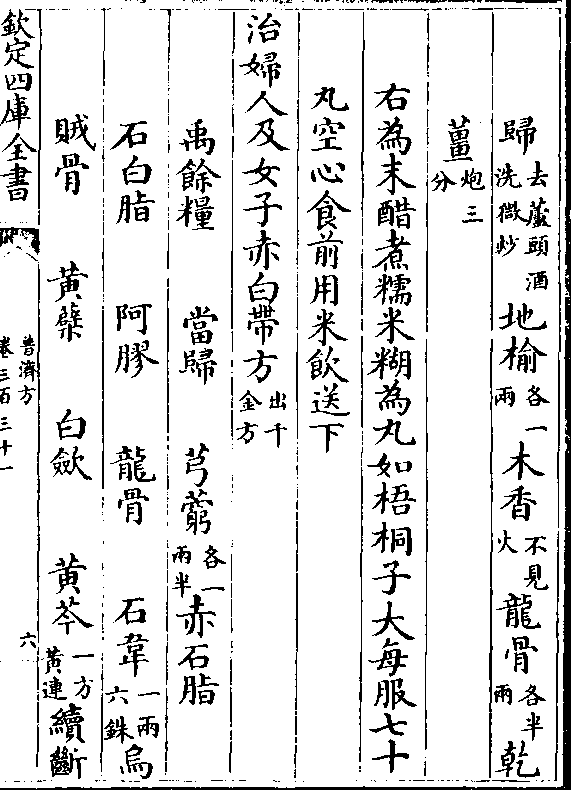 歸去蘆頭酒洗微炒地榆各一兩木香不見火龍骨各半兩乾
薑炮三分
右為末醋煮糯米糊為丸如梧桐子大每服七十
丸空心食前用米飲送下
治婦人及女子赤白帶方出千金方
禹餘糧 當歸 芎藭各一兩半赤石脂
石白脂 阿膠 龍骨 石韋一兩六銖烏
賊骨 黃蘗 白斂 黃芩一方黃連續斷
欽定四庫全書
普濟方
卷三百三十一
六